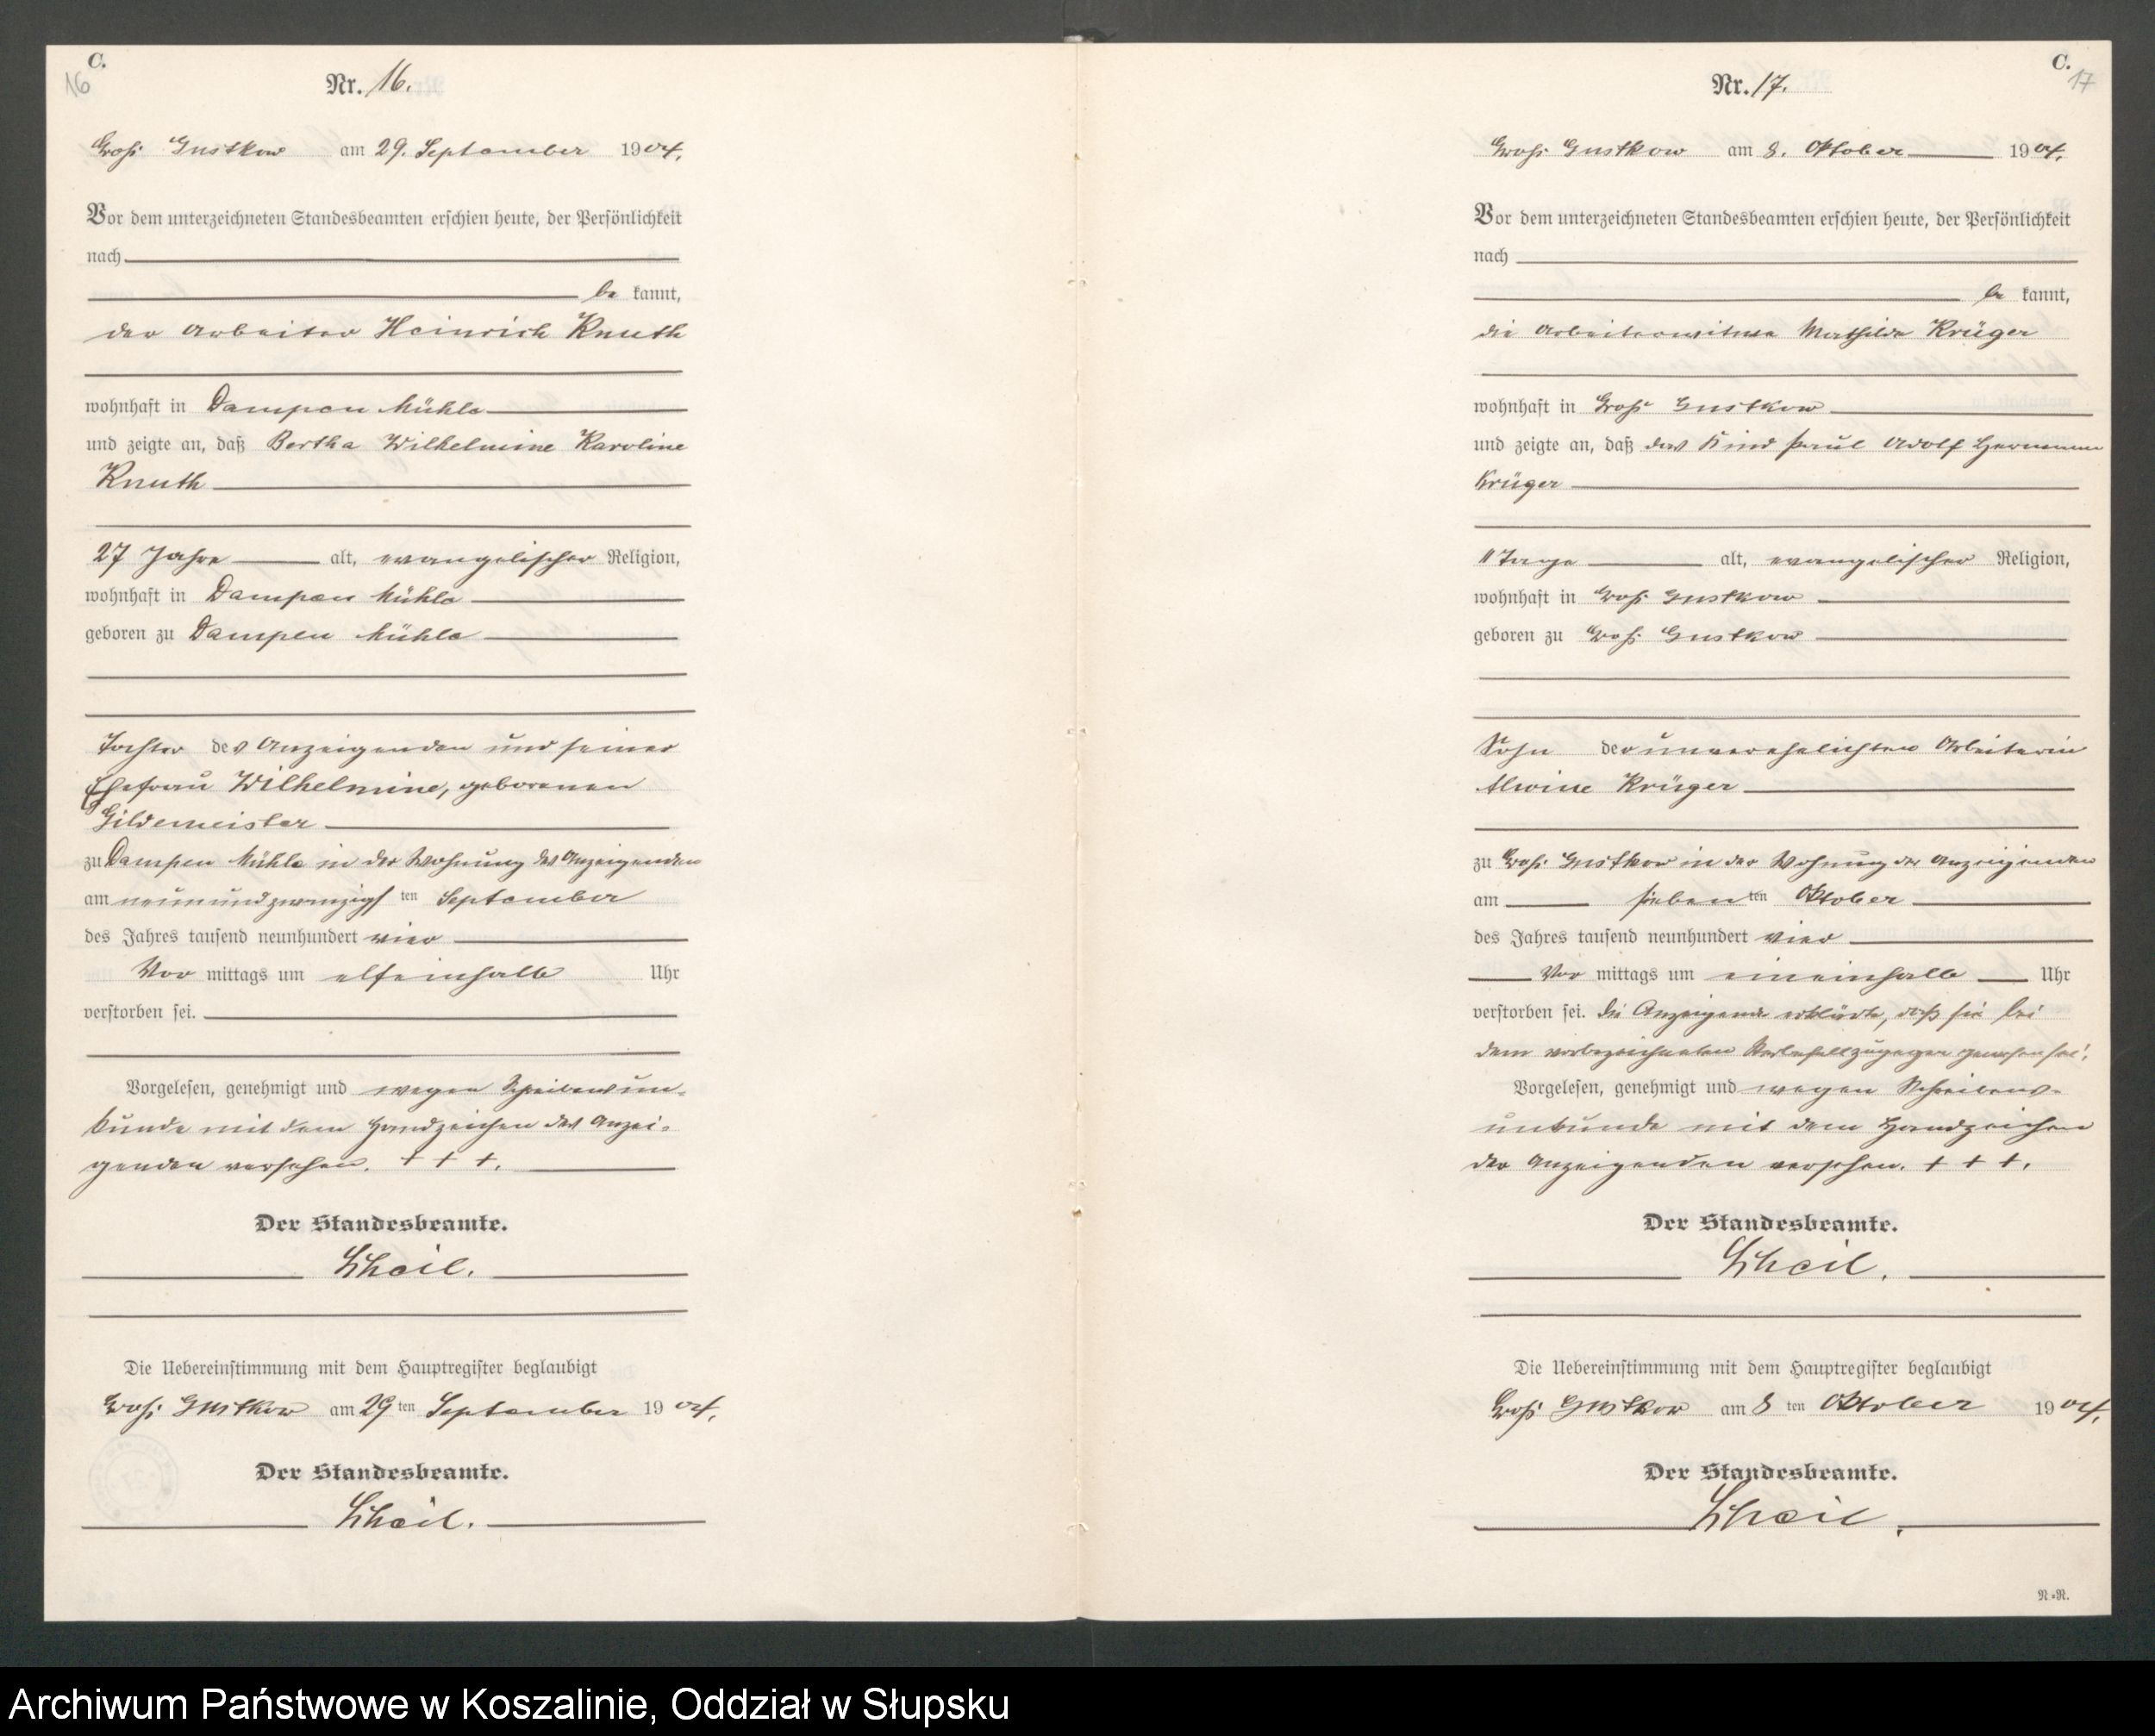 C.
16
Nr. 16.
Groß Gustkow am 29. September 1904.
Vor dem unterzeichneten Standesbeamten erschien heute, der Persönlichkeit
nach
be kannt,
der Arbeiter Heinrich Knuth
wohnhaft in Dampen Mühle
und zeigte an, daß Bertha Wilhelmine Karoline
Knuth
27 Jahre alt, evangelischer Religion,
wohnhaft in Dampen Mühle
geboren zu Dampen Mühle
Tochter des Anzeigenden und seiner
Ehefrau Wilhelmine, geborenen
Gildemeister
zu Dampen Mühle in der Wohnung des Anzeigenden
am neunundzwanzigsten September
des Jahres tausend neunhundert vier
Vor mittags um elfeinhalb Uhr
verstorben sei.
Vorgelesen, genehmigt und wegen Schreibensun-
kunde mit dem Handzeichen des Anzei-
genden versehen. + + +.
Der Standesbeamte.
Die Uebereinstimmung mit dem Hauptregister beglaubigt
Groß Gustkow am 29ten September 1904.
Der Standesbeamte.
C.
17
Nr. 17.
Groß Gustkow am 8. Oktober 1904.
Vor dem unterzeichneten Standesbeamten erschien heute, der Persönlichkeit
nach
be kannt,
die Arbeiterwitwe Mathilde Krüger
wohnhaft in Groß Gustkow
und zeigte an, daß das Kind Paul Adolf Hermann
Krüger
11 Tage alt, evangelischer Religion,
wohnhaft in Groß Gustkow
geboren zu Groß Gustkow
Sohn der unverehelichten Arbeiterin
Alwine Krüger
zu Groß Gustkow in der Wohnung der Anzeigenden
am siebenten Oktober
des Jahres tausend neunhundert vier
Vor mittags um eineinhalb Uhr
verstorben sei. Die Anzeigende erklärte, daß sie bei
dem vorbezeichneten Sterbefall zugegen gewesen sei.
Vorgelesen, genehmigt und wegen Schreibens-
unkunde mit dem Handzeichen
der Anzeigenden versehen. + + +.
Der Standesbeamte.
Die Uebereinstimmung mit dem Hauptregister beglaubigt
Groß Gustkow am 8ten Oktober 1904.
Der Standesbeamte.
N.-R.
Archiwum Państwowe w Koszalinie, Oddział w Słupsku